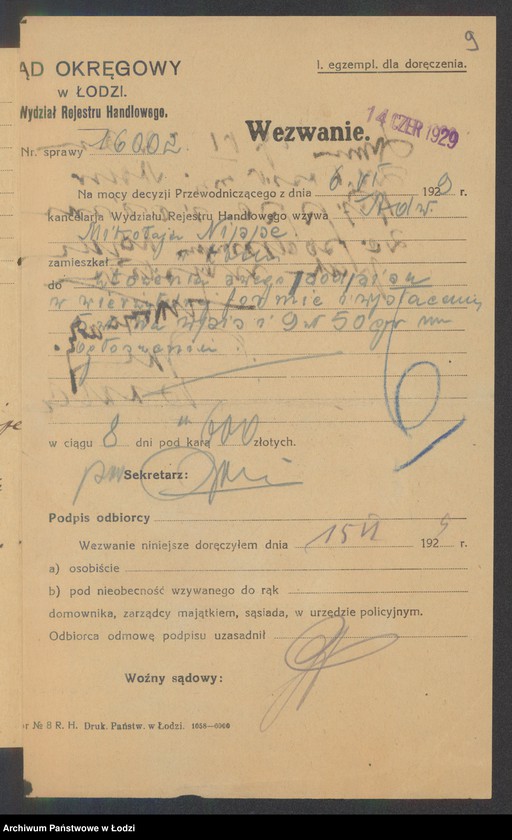 9
AD OKRĘGOWY
w ŁODZI.
Wydział Rejestru Handlowego.
I. egzempl. dla doręczenia.
Wezwanie.
14 CZER 1929
Nr. sprawy 16002.
Na mocy decyzji Przewodniczącego z dnia 6 VI 1929 r.
kancelarja Wydziału Rejestru Handlowego wzywa Adw.
Mikołaja Nippe
zamieszkał
do złożenia swego podania
w wierzytelnej formie i wpłacenia
na wpis i 9 zł 50 gr na
ogłoszenia
w ciągu 8 dni pod karą 600 złotych.
Sekretarz:
Podpis odbiorcy
Wezwanie niniejsze doręczyłem dnia 15 VI 1929 r.
a) osobiście
b) pod nieobecność wzywanego do rąk
domownika, zarządcy majątkiem, sąsiada, w urzędzie policyjnym.
Odbiorca odmowę podpisu uzasadnił
Woźny sądowy:
r № 8 R. H. Druk. Państw. w Łodzi. 1658—6000
Archiwum Państwowe w Łodzi